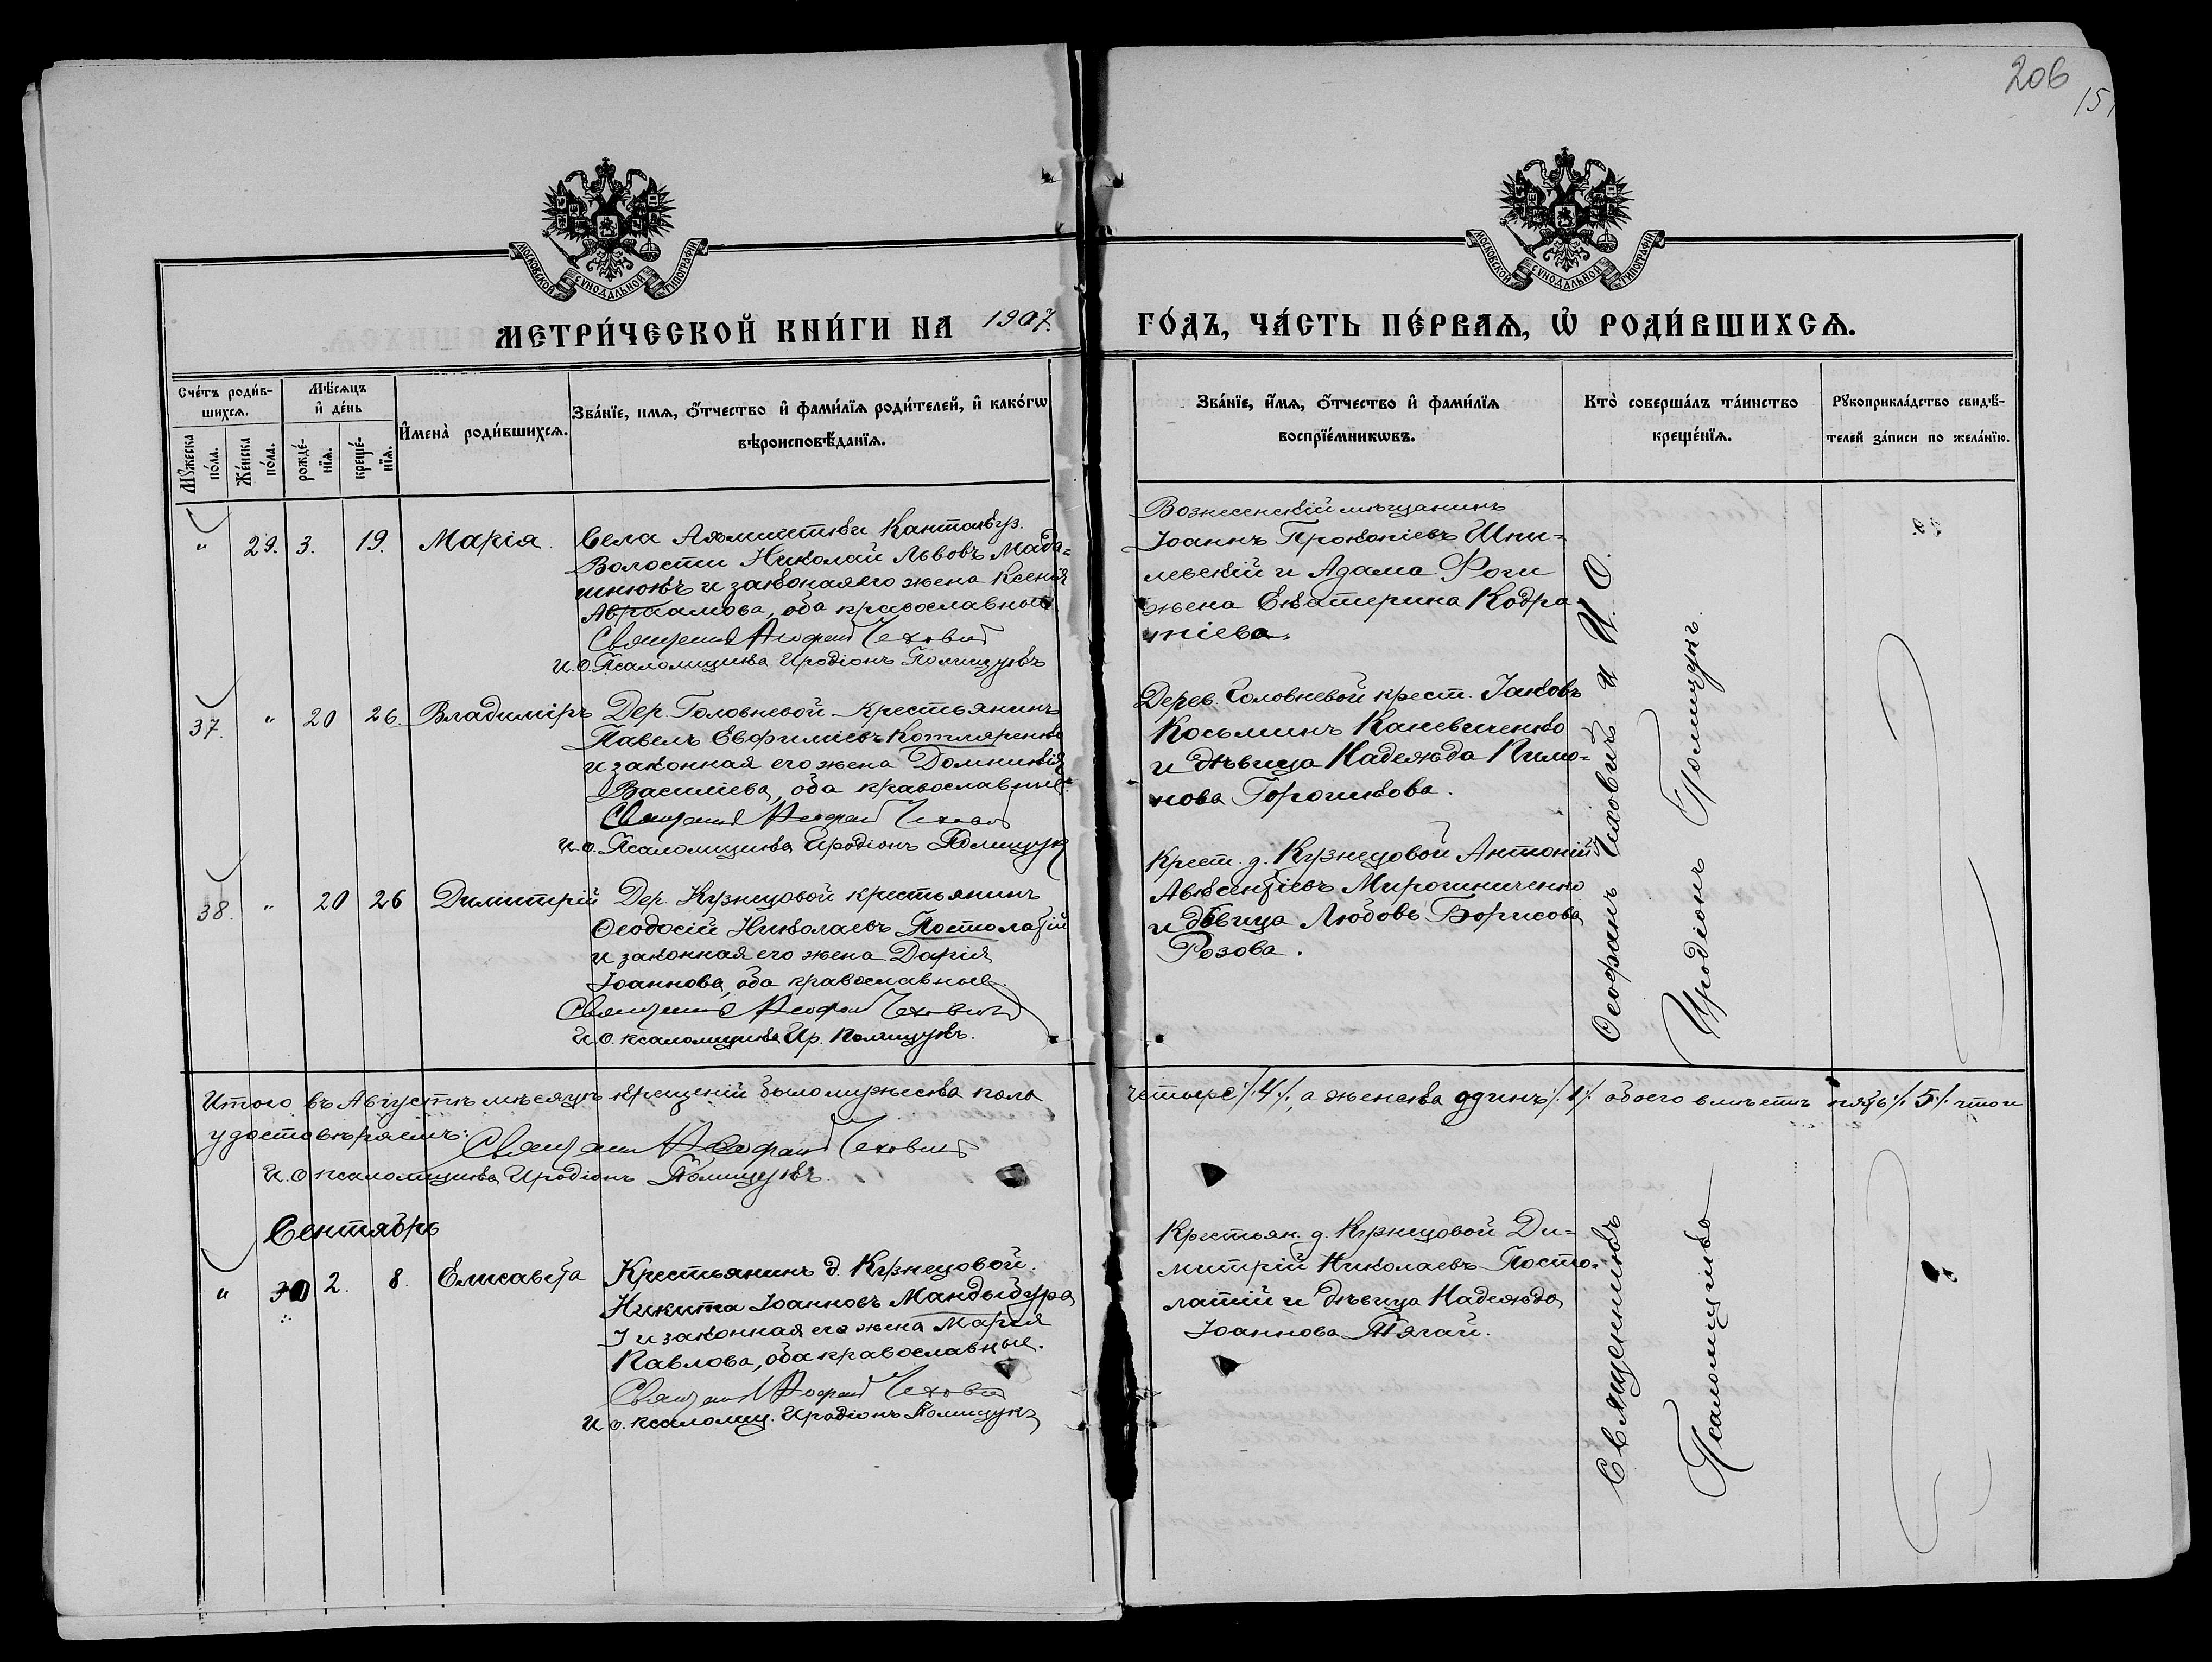 206
151
МОСКОВСКОЙ СѴНОДАЛЬНОЙ ТИПОГРАФІИ
МОСКОВСКОЙ СѴНОДАЛЬНОЙ ТИПОГРАФІИ
МЕТРИ́ЧЕСКОЙ КНИ́ГИ НА 1907
ГО́ДЪ, ЧА́СТЬ ПЕ́РВАѦ, Ѡ҆ РОДИ́ВШИХСѦ.
Сче́тъ роди́в-
шихсѧ.
Мꙋ́жеска по́ла.
Же́нска по́ла.
Мѣ́сѧцъ
и҆ де́нь
рожде́-
нїѧ.
креще́-
нїѧ.
И҆мена̀ роди́вшихсѧ.
Зва́нїе, имѧ, ѻ҆́тчество и҆ фами́лїѧ роди́телей, и҆ како́гѡ
вѣроисповѣ́данїѧ.
Зва́нїе, и҆́мѧ, ѻ҆́тчество и҆ фами́лїѧ
воспрїе́мникѡвъ.
Кто̀ соверша́лъ та́инство
креще́нїѧ.
Рꙋкоприкла́дство свидѣ́-
телей за́писи по жела́нїю.
" 29. 3. 19. Марія.
Села
Волости Николай Львовъ Мада=
шнюкъ и законная его жена Ксенія
Авраамова, оба православные
Священникъ Ѳеофанъ Чеховичъ
И. О. Псаломщика Иродіонъ Полищукъ
Вознесенскій мѣщанинъ
Іоаннъ Прокопіевъ Шпи=
левскій и Адама Роги
жена Екатерина Кодра
тіева.
37. " 20 26. Владиміръ
Дер. Головневой крестьянинъ
Павелъ Евфиміевъ Котляренко
и законная его жена Домникія
Василіева, оба православные.
Священникъ Ѳеофанъ Чеховичъ
И. О. Псаломщика Иродіонъ Полищукъ
Дерев. Головневой крест. Іаковъ
Косьминъ Каневченко
и дѣвица Надежда Пимо=
нова Горошкова.
38. " 20 26 Димитрій
Дер. Кузнецовой крестьянинъ
Ѳеодосій Николаевъ Постолатій
и законная его жена Дарія
Іоаннова, оба православные.
Священникъ Ѳеофанъ Чеховичъ
И. О. псаломщика Ир. Полищукъ.
Крест. д. Кузнецовой Антоній
Авксентіевъ Мирошниченко
и дѣвица Любовь Борисова
Розова.
Ѳеофанъ Чеховичъ и И. О.
Иродіонъ Полищукъ.
Итого въ Августѣ мѣсяцѣ крещеній было мужеска пола
четыре /.4/., а женска одинъ /.1/. обоего вмѣстѣ пять /.5/. что и
удостовѣряемъ:
Священникъ Ѳеофанъ Чеховичъ
И. О. псаломщика Иродіонъ Полищукъ.
Сентябрь
" 30 2. 8. Елисавета
Крестьянинъ д. Кузнецовой.
Никита Іоанновъ Мандыбура
и законная его жена Марія
Павлова, оба православные.
Священникъ Ѳеофанъ Чеховичъ
И. О. псаломщ. Иродіонъ Полищукъ
Крестьян. д. Кузнецовой Ди=
митрій Николаевъ Посто=
латій и дѣвица Надежда
Іоаннова Тягай.
Священникъ
Псаломщика